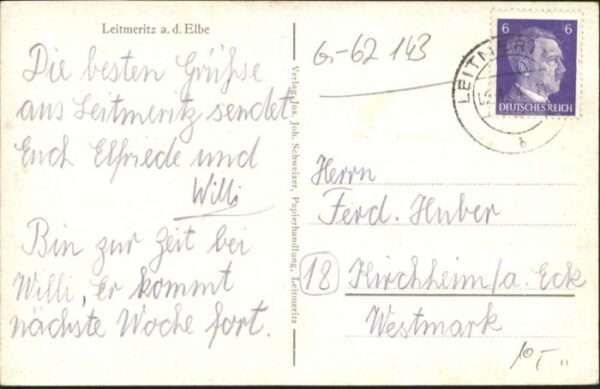 Leitmeritz a. d. Elbe
Die besten Grühse
aus Leitmeritz sendet
Euch Elfriede und
Willi
Bin zur Zeit bei
Willi, Er kommt
nächste Woche fort.
Verlag Jos. Joh. Schweizer, Papierhandlung, Leitmeritz
6-62 143
6 6
DEUTSCHES REICH
LEITMERI
b
Herrn
Ferd. Huber
18 Kirchheim/a. Eck
Westmark